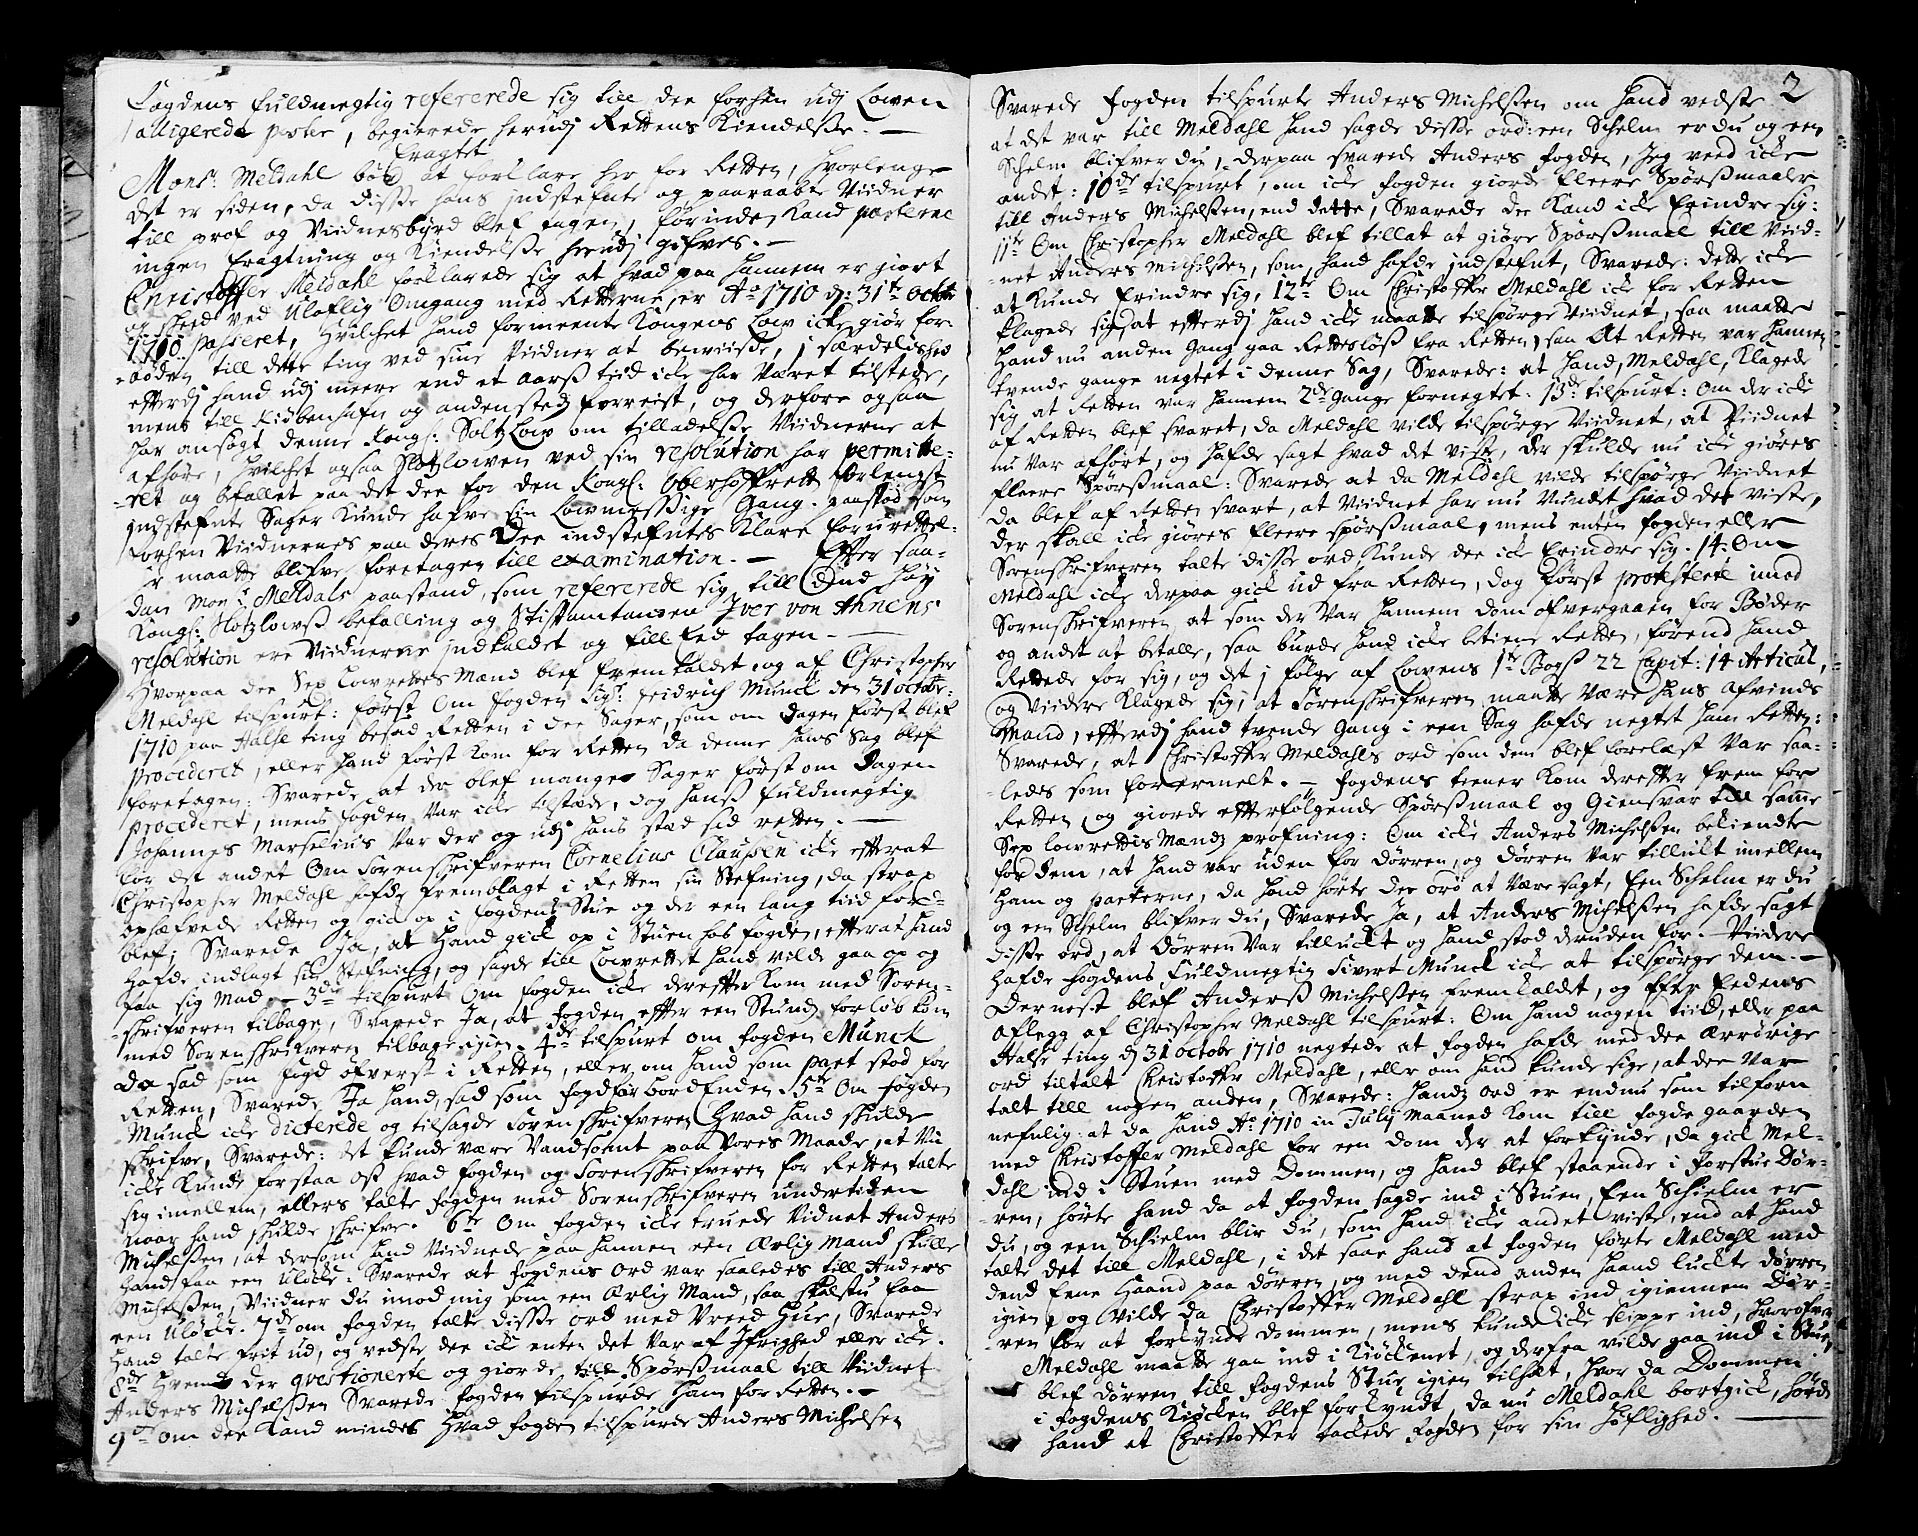 Fogdens fuldmegtig refererede sig till de forhen udj Lowen
alligerede poster, begierede herudj Rettens Kiendelsse. —
Eragtet
Mons: Meldahl bød at forklare her for Retten, hvorlenge
det er siden, da disse hans indstefnte og paaraabte Viidner
till prof og Viidnesbyrd blef tagen, førinden kand parterne
ingen Eragtning og Kiendelsse herudj gifves. —
Christoffer Meldahl forklarede sig at hvad paa hannem er giort
og skeed ved Ulaflig Omgang med Retterne, er Ao 1710 d: 31te Octobr
1710. passeret, hvilchet hand formeente Kongens Low icke giør for-
nøden till dette ting ved sine Viidner at bewiisse, i særdelished
efterdj hand udj meere end et aarss tiid icke har Været tilstede,
mens till Kiøbenhafn og andensteds forreist, og derfore ogsaa
har ansøgt denne Kongl: Slotzlow om tilladelsse Viidnerne at
afhøre, hvilchet ogsaa Slotzlowen ved sin resolution har permitte-
ret og befallet paa det de for den Kongl: Oberhoffrett forlengst
indstefnte Sager kunde hafve sin Lowmessige Gang. paastod som
forhen Viidnernes paa deres De indstefntes klare forurettel-
ser maatte blifve foretagen till examination. — Efter saa-
dan Monsr Meldals paastand, som refererede sig till Dend høy
Kongl: Slotzlowss befalling og Stiftamtmanden Iver von Ahnens
resolution ere Viidnerne indkaldet og till Eed tagen. —
Hvorpaa de Sex Lowrettes Mænd blef fremkaldet og af Christopher
Meldahl tilspurt: først Om fogden Sigr. Fridrich Munch den 31 octobr:
1710 paa Halse ting besad Retten i de Sager, som om dagen først blef
procederet, eller hand først kom for Retten da denne hans Sag blef
foretagen: Svarede, at der blef mange Sager først om dagen
procederet, mens fogden var icke tilstede, dog hanss fuldmegtig
Johannes Marselius var der og udj hans sted sad retten. —
for det andet Om Sorenskrifveren Cornelius Claussen icke efterat
Christopher Meldahl hafde fremblagt i Retten sin Stefning, da strax
ophæfvede Retten og gick op i fogdens Stue og der een lang tiid for-
blef; Svarede Ja, at hand gick op i Stuen hos fogden, efterat hand
hafde indlagt sin Stefning, og sagde till Lowrettet hand vilde gaa op og
faa sig Mad. — 3de tilspurt Om fogden icke derefter kom med Soren-
skrifveren tilbage, Svarede Ja, at fogden efter een Stundz forløb kom
med Sorenskrifveren tilbage igien. 4de tilspurt om fogden Munch
da sad som fogd øfverst i Retten, eller om hand som part stod for
Retten, Svarede Ja hand sad som fogd for bord Enden. 5te Om fogden
Munch icke dicterede og tilsagde Sorenskrifveren hvad hand skulde
skrifve, Svarede: det kunde være Vandsomt paa Vores Maade, at Vii
icke kunde forstaa det hvad fogden og Sorenskrifveren for Retten talte
sig imellem, ellers talte fogden med Sorenskrifveren undertiden
naar hand skulde skrifve. 6te Om fogden icke truede Vidnet Anders
Michelssen, at dersom hand Viidnede paa hannem een Ærlig Mand skulle
hand faa een Ulycke: Svarede at fogdens ord var saaledes till Anders
Michelssen, Viidner du imod mig som een Ærlig Mand, saa skalstu faa
een Uløcke. 7de om fogden talte disse ord med Vreed Hue, Svarede
hand talte frit ud, og vedste de icke enten det var af Ifrighed eller icke.
8de hvem der qvestionerte og giorde till Spørssmaal till Viidnet
Anders Michelssen Svarede fogden tilspurde ham for Retten. —
9de om de kand mindes hvad fogden tilspurde Anders Michelsen
2
Svarede fogden tilspurte Anders Michelssen om hand vedste
at det var till Meldahl hand sagde disse ord: een Schelm er du og een
Schelm blifver du, derpaa svarede Anders fogden, Jeg veed icke
andet: 10de tilspurt, om icke fogden giorde fleere Spørssmaaler
till Anders Michelssen, end dette, Svarede de kand icke Erindre sig:
11te Om Christopher Meldahl blef tillat at giøre Sporssmaal till Viid-
net Anders Michelssen, som hand hafde indstefnt, Svarede: dette icke
at kunde Erindre sig, 12te Om Christoffer Meldahl icke for Retten
klagede sig, at efterdj hand icke maatte tilspørge Viidnet, saa maatte
hand nu anden Gang gaa Rettesløss fra Retten, saa At Retten var hannem
trende gange negtet i denne Sag, Svarede: at hand, Meldahl, klagede
sig at Retten var hannem 2de Gange fornegtet. 13de tilspurt: Om der icke
af Retten blef svaret, da Meldahl vilde tilspørge Viidnet, at Viidnet
nu var afhørt, og hafde sagt hvad det viste, der skulde nu icke giøres
fleere Spørssmaal: Svarede at da Meldahl vilde tilspørge Viidnet
da blef af Retten svart, at Viidnet har nu Vundet hvad det viste,
der skall icke giøres fleere spørssmaal, mens enten fogden eller
Sorenskrifveren talte disse ord, kunde de icke Erindre sig. 14. Om
Meldahl icke derpaa gick ud fra Retten, dog først protesterte imod
Sorenskrifveren at som der var hannem dom ofvergaaen for Bøder
og andet at betalle, saa burde hand icke betiene Retten, førend hand
Rettede for sig, og det j følge af Lowens 1te Bogss 22 Capit: 14 Articul,
og Viidere klagede sig, at Sorenskrifveren maatte Være hans Afvinds
Mand, efterdj hand trende Gang i een Sag hafde negtet ham Retten:
Svarede, at Christoffer Meldahls ord som dem blef forelæst var saa-
ledes som forermelt. — fogdens tiener kom derefter frem for
Retten og giorde efterfølgende Spørssmaal og Giensvar till samme
Sex lowrettis Mændz prøfning: Om icke Anders Michelssen bekiendte
for dem, at hand var uden for dørren, og dørren var tillukt imellem
ham og parterne, da hand hørte de ord at Være sagt, Een Schelm er du
og een Schelm blifver du, Svarede Ja, at Anders Michelssen hafde sagt
disse ord, at dørren var tilluckt og hand stod deruden for. Viidere
hafde fogdens fuldmegtig Sivert Munch icke at tilspørge dem. —
Dernest blef Anderss Michelssen fremkaldet, og efter Eedens
aflegg af Christopher Meldahl tilspurt: Om hand nogen tiid, eller paa
Halse ting d 31 octobr 1710 negtede at fogden hafde med de Ærrørige
ord tiltalt Christoffer Meldahl, eller om hand kunde sige, at de var
talt till nogen anden, Svarede: handz ord er endnu som tilforn
nefnlig: at da hand Ao 1710 in July maaned kom till fogde gaarden
med Christoffer Meldahl for een dom der at forkynde, da gick Mel-
dahl ind i Stuen med Dommen, og hand blef staaende i forstue Dør-
ren, hørte hand da at fogden sagde ind i Stuen, Een Schielm er
du, og een Schielm blir du, som hand icke andet viste, end at hand
talte det till Meldahl, i det saae hand at fogdenførte Meldahl med
dend Eene haand paa dørren, og med dend anden haand luckte dørren
igien, og Vilde da Christoffer Meldahl strax ind igiennem Dør-
ren for at forkynde dommen, mens kunde icke slippe ind, hvorofver
Meldahl maatte gaa ind i Kiøckenet, og derfra vilde gaa ind i Stuen,
blef dørren till fogdens Stue igien tilsat, hvor da Dommen
i fogdens Kiøcken blef forkyndt, da nu Meldahl bortgick, hørde
hand at Christoffer tackede fogden for sin høflighed. —